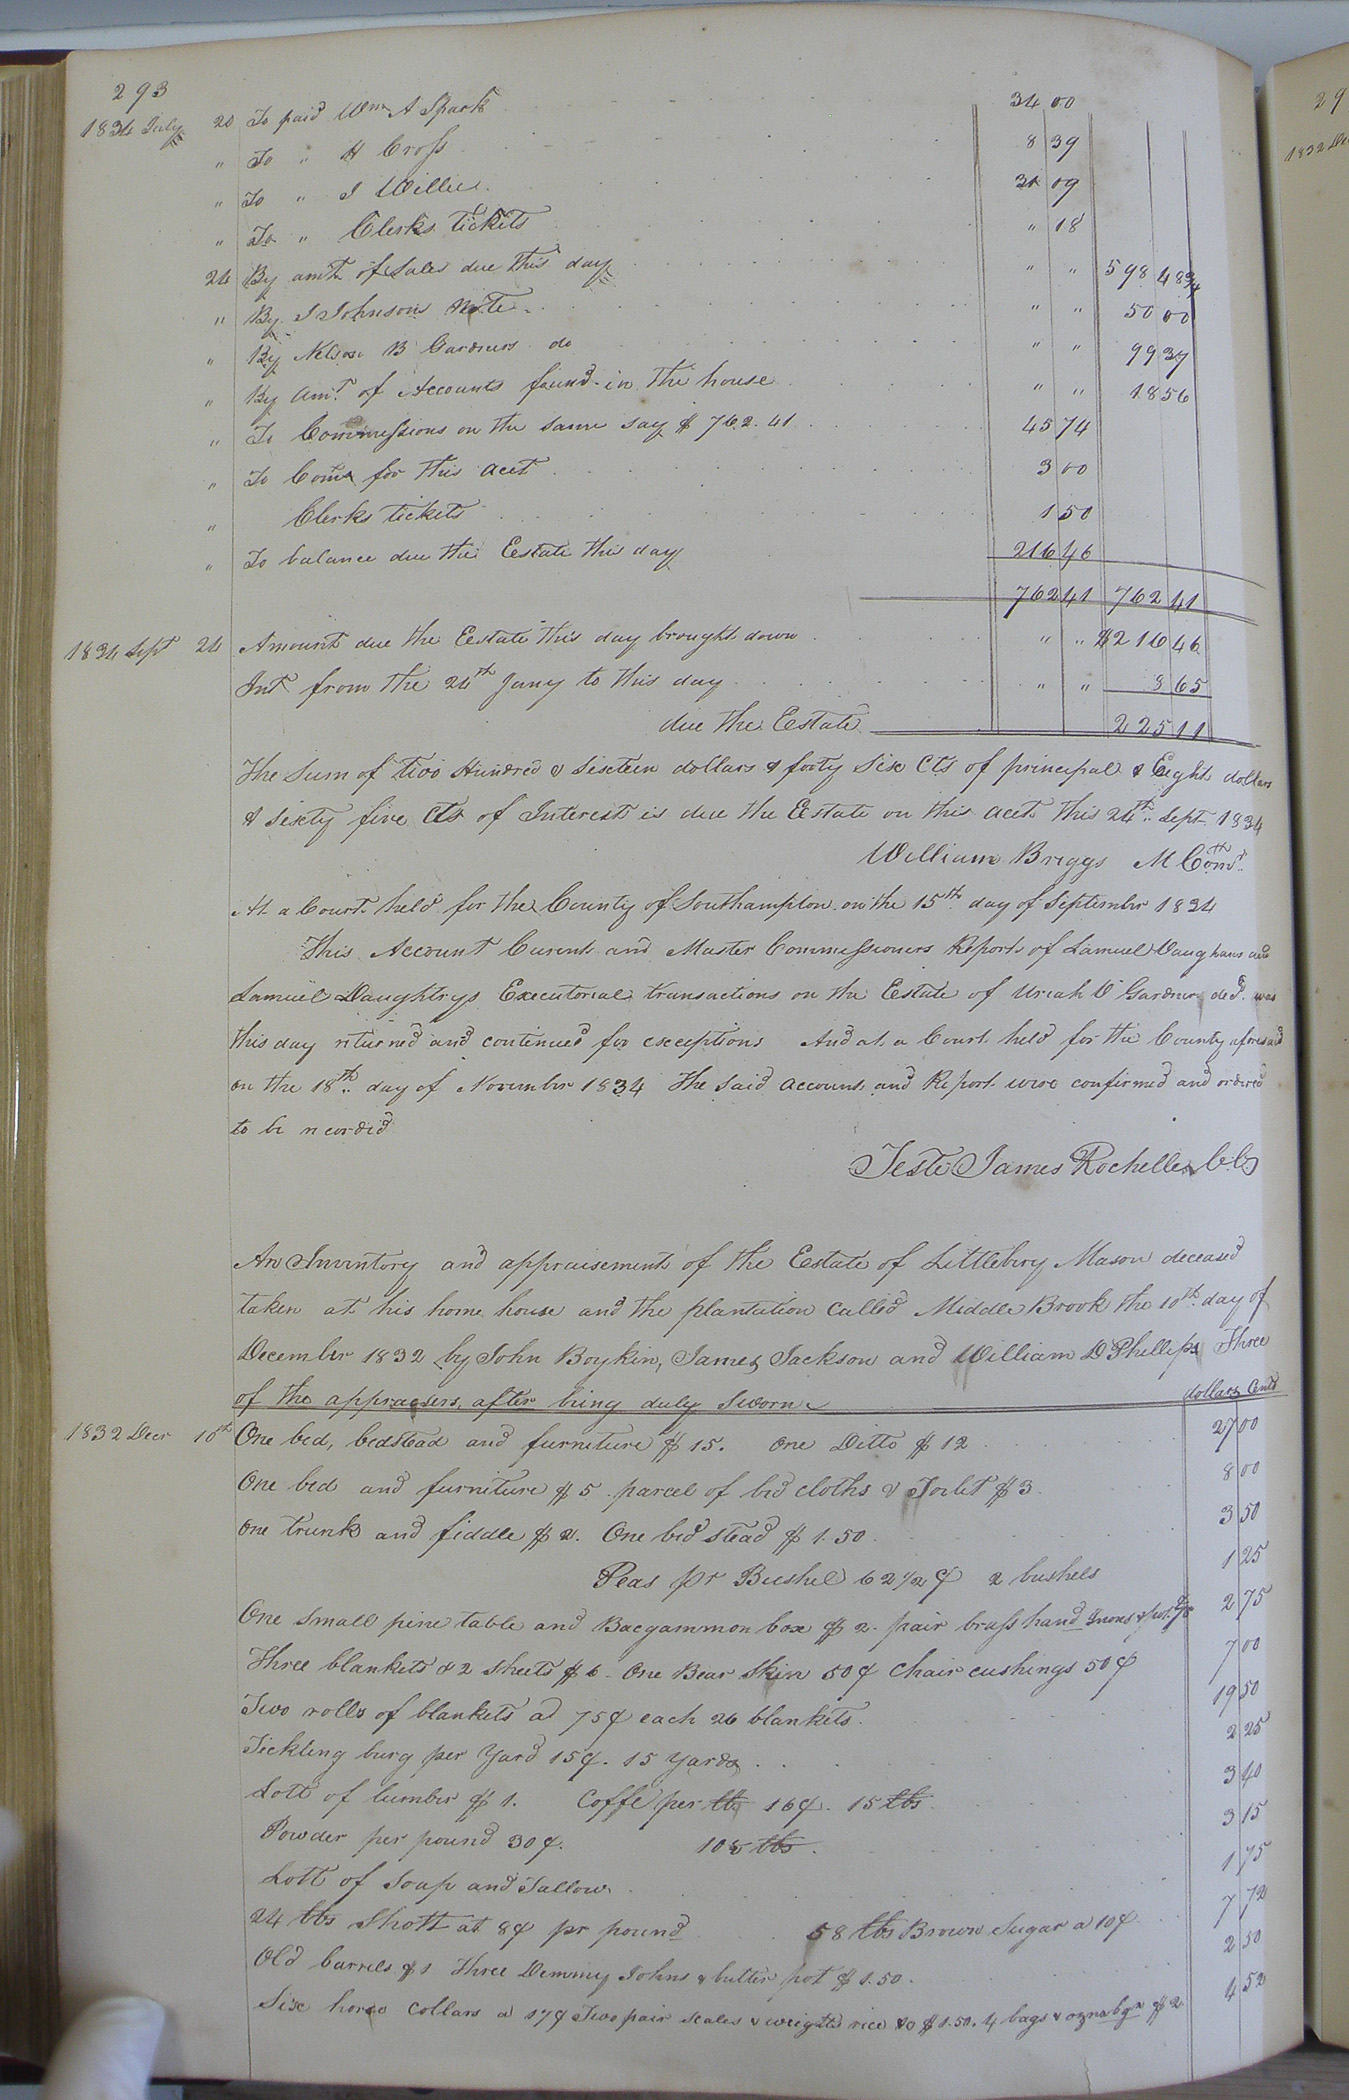 293
1834 July 20 To paid Wm A Spark 34 00
" To " H Cross 8 39
" To " J Willie 09
" To " Clerks tickets " 18
24 By amt of Sales due this day " " 598 48 3/4
" By J Johnsons Note " " 50 00
" By Nelson B Gardners do " " 99 37
" By Amt. of Accounts found in the house " " 18 56
" To Commissions on the same say $ 762.41 45 74
" To Coms for this acct 3 00
" Clerks tickets 1 50
" To balance due the Eestate this day 216 46
762 41 762 41
1834 Sept 24 Amount due the Eestate this day brought down " " $216 46
Int from the 24th Jany to this day " " 8 65
due the Eestate 225 11
The Sum of two Hundred & Sixteen dollars & forty Six Cts of principal & Eight dollars
& Sixty five Cts of Interest is due the Eestate on this acct this 24th Sept 1834
William Briggs M Comr.
At a Court held for the County of Southampton on the 15th day of September 1834
This Account Curent and Master Commissioners Report of Samuel Vaughans and
Samuel Daughtrys Executorial transactions on the Estate of Uriah C Gardner decd. was
this day returned and continued for exceptions And at a Court held for the County aforesaid
on the 18th day of November 1834 The Said account and Report were confirmed and ordered
to be recorded
Teste James Rochelle, C.C.
An Inventory and appraisement of the Estate of Littlebery Mason deceased
taken at his home house and the plantation Called Middle Brook the 10th day of
December 1832 by John Boykin, James Jackson and William D Phillips Three
of the appraesers, after being duly Sworn dollars Cents
1832 Decr 10th One bed, bedstead and furniture $ 15. one Ditto $ 12 27 00
One bed and furniture $ 5. parcel of bed cloths & Toilet $ 3. 8 00
one trunk and fiddle $ 2. One bed stead $ 1.50 3 50
Peas pr Bushel 62 1/2 ¢ 2 bushels 1 25
One Small pine table and Bacgammon box $ 2. pair brass hand Irons & pot 2 75
Three blankets & 2 Sheets $ 6. One Bear Skin 50¢ Chair cushings 50¢ 7 00
Two rolls of blankets ad 75¢ each 26 blankets. 19 50
Tickling burg per Yard 15¢. 15 Yards 2 25
Lott of lumber $ 1. Coffe per lb 16¢. 15 lbs 3 40
Powder per pound 30¢. 10 1/2 lbs. 3 15
Lott of Soap and Tallow 1 75
24 lbs Shott at 8¢ pr pound 58 lbs Brown Sugar a 10¢ 7 72
Old barrels $1 Three Demmy Johns & butter pot $ 1.50. 2 50
Six horse Collars a 17¢ Two pair Scales & weights rice &c $ 1.50. 4 bags & oznabgn $ 2 4 52
29
1832 De